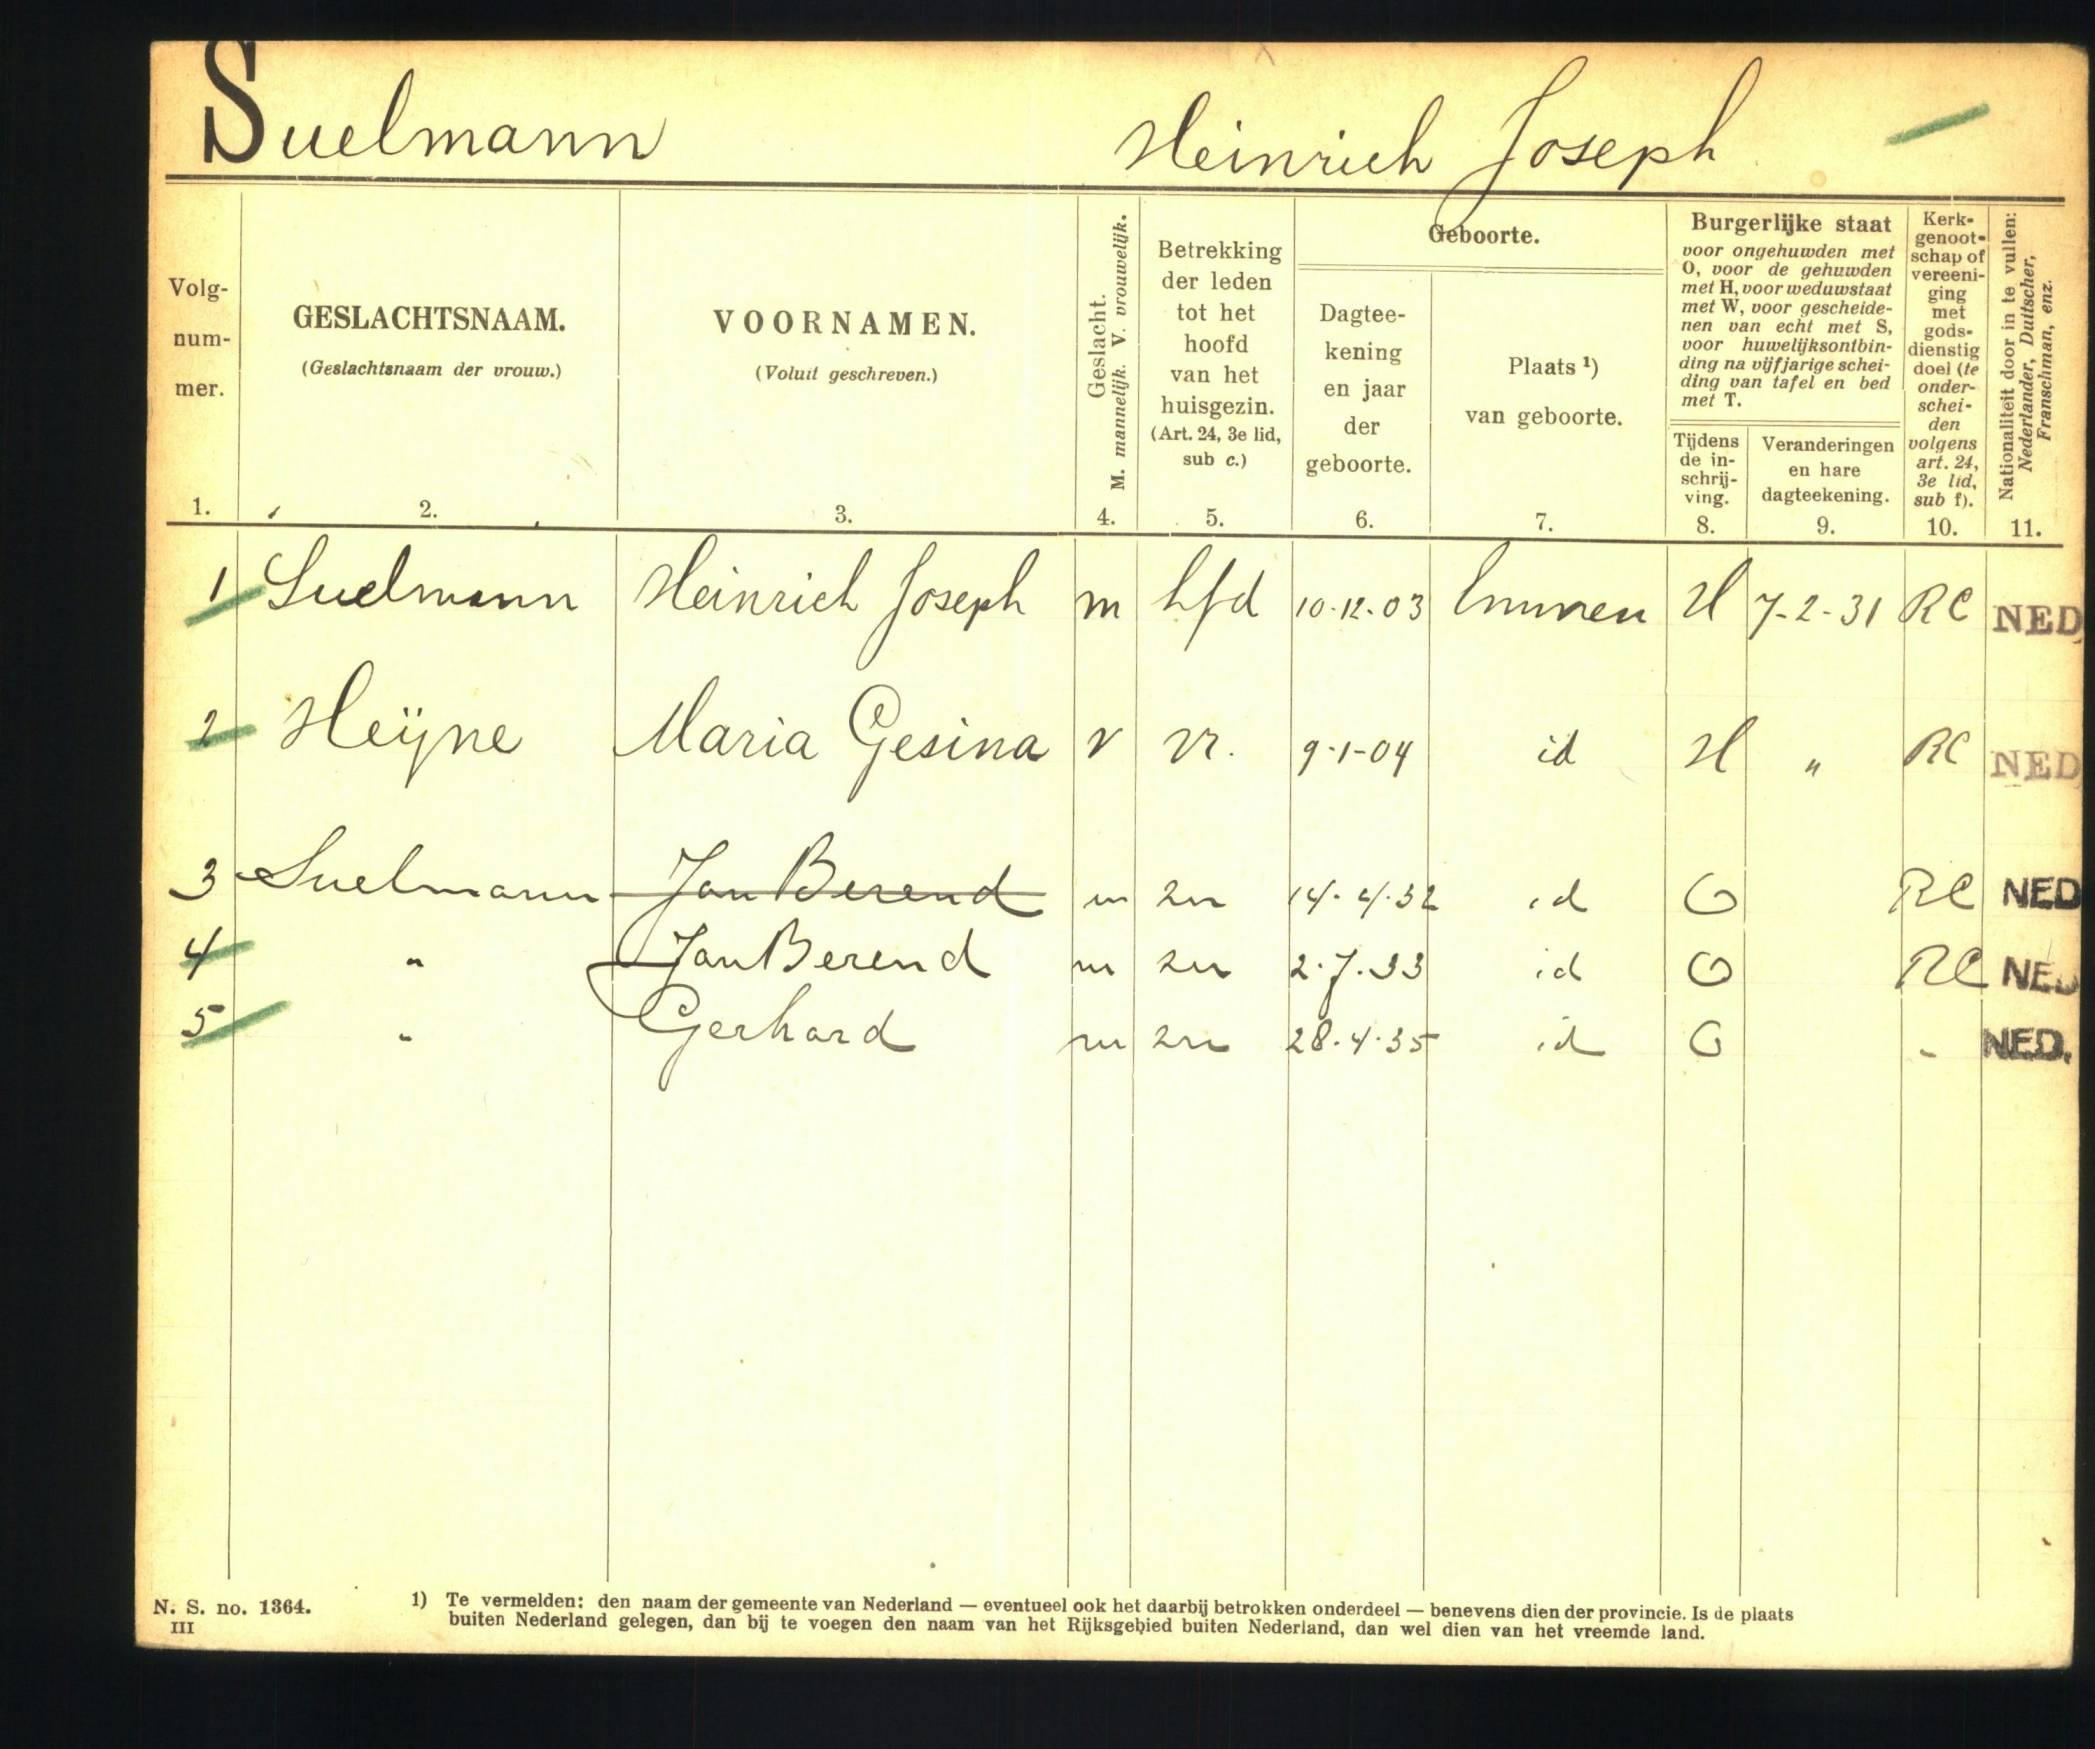 Suelmann Heinrich Joseph
Volg-
num-
mer.
1.
GESLACHTSNAAM.
(Geslachtsnaam der vrouw.)
2.
VOORNAMEN.
(Voluit geschreven.)
3.
Geslacht.
M. mannelijk. V. vrouwelijk.
4.
Betrekking
der leden
tot het
hoofd
van het
huisgezin.
(Art. 24, 3e lid,
sub c.)
5.
Geboorte.
Dagtee-
kening
en jaar
der
geboorte.
6.
Plaats ¹)
van geboorte.
7.
Burgerlijke staat
voor ongehuwden met
O, voor de gehuwden
met H, voor weduwstaat
met W, voor gescheide-
nen van echt met S,
voor huwelijksontbin-
ding na vijfjarige schei-
ding van tafel en bed
met T.
Tijdens
de in-
schrij-
ving.
8.
Veranderingen
en hare
dagteekening.
9.
Kerk-
genoot-
schap of
vereeni-
ging
met
gods-
dienstig
doel (te
onder-
schei-
den
volgens
art. 24,
3e lid,
sub f).
10.
Nationaliteit door in te vullen:
Nederlander, Duitscher,
Franschman, enz.
11.
1 Suelmann Heinrich Joseph m hfd 10-12-03 Emmen H 7-2-31 RC NED
2 Heijne Maria Gesina v vr. 9-1-04 id H " RC NED
3 Suelmann Jan Berend m zn 14.4.32 id O RC NED
4 " Jan Berend m zn 2.7.33 id O RC NED
5 " Gerhard m zn 28.4.35 id O " NED.
N. S. no. 1364.
III
1) Te vermelden: den naam der gemeente van Nederland — eventueel ook het daarbij betrokken onderdeel — benevens dien der provincie. Is de plaats
buiten Nederland gelegen, dan bij te voegen den naam van het Rijksgebied buiten Nederland, dan wel dien van het vreemde land.